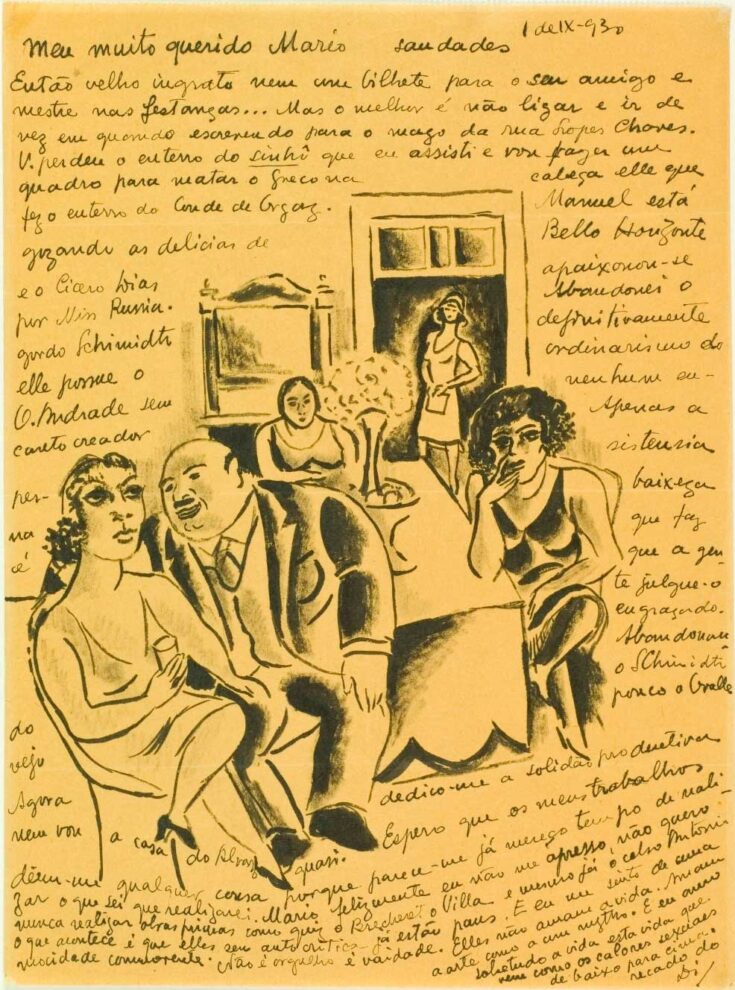 1 de IX-930
Meu muito querido Mario saudades
Então velho ingrato nem um bilhete para o seu amigo e
mestre nas festanças... Mas o melhor é não ligar e ir de
vez em quando escrevendo para o mago da rua Lopes Chaves.
V. perdeu o enterro do Sinhô que eu assisti e vou fazer um
quadro para matar o Greco na cabeça elle que
fez o enterro do Conde de Orgaz. Manuel está
gozando as delicias de Bello Horizonte
e o Cicero Dias apaixonou-se
por Miss Russia. Abandonei o
gordo Schimidti definitivamente
elle possue o ordinarismo do
O. Andrade sem nenhum en-
canto creador Apenas a
per- sistensia
na baixeza
é que faz
que a gen-
te julgue-o
engraçado.
Abandonan
do o SChimidti
vejo pouco o Ovalle
Agora dedico-me a solidão productiva
nem vou a casa do Alvaro quasi. Espero que os meus trabalhos
dêem-me qualquer coisa porque parece-me já mereço tempo de reali-
zar o que sei que realizarei. Mario felizmente eu não me apresso, não quero
nunca realizar obras primas como quiz o Brecheret o Villa e mesmo já o Celso Antonio
o que acontece é que elles sem autocritica já estão paus. E eu me sinto de uma
mocidade commovente. Não é orgulho é vaidade. Elles não amam a vida. Amam
a arte como a um mytho. E eu amo
sobretudo a vida esta vida que
vem como os calores sexuaes
de baixo para cima.
recado do
Di